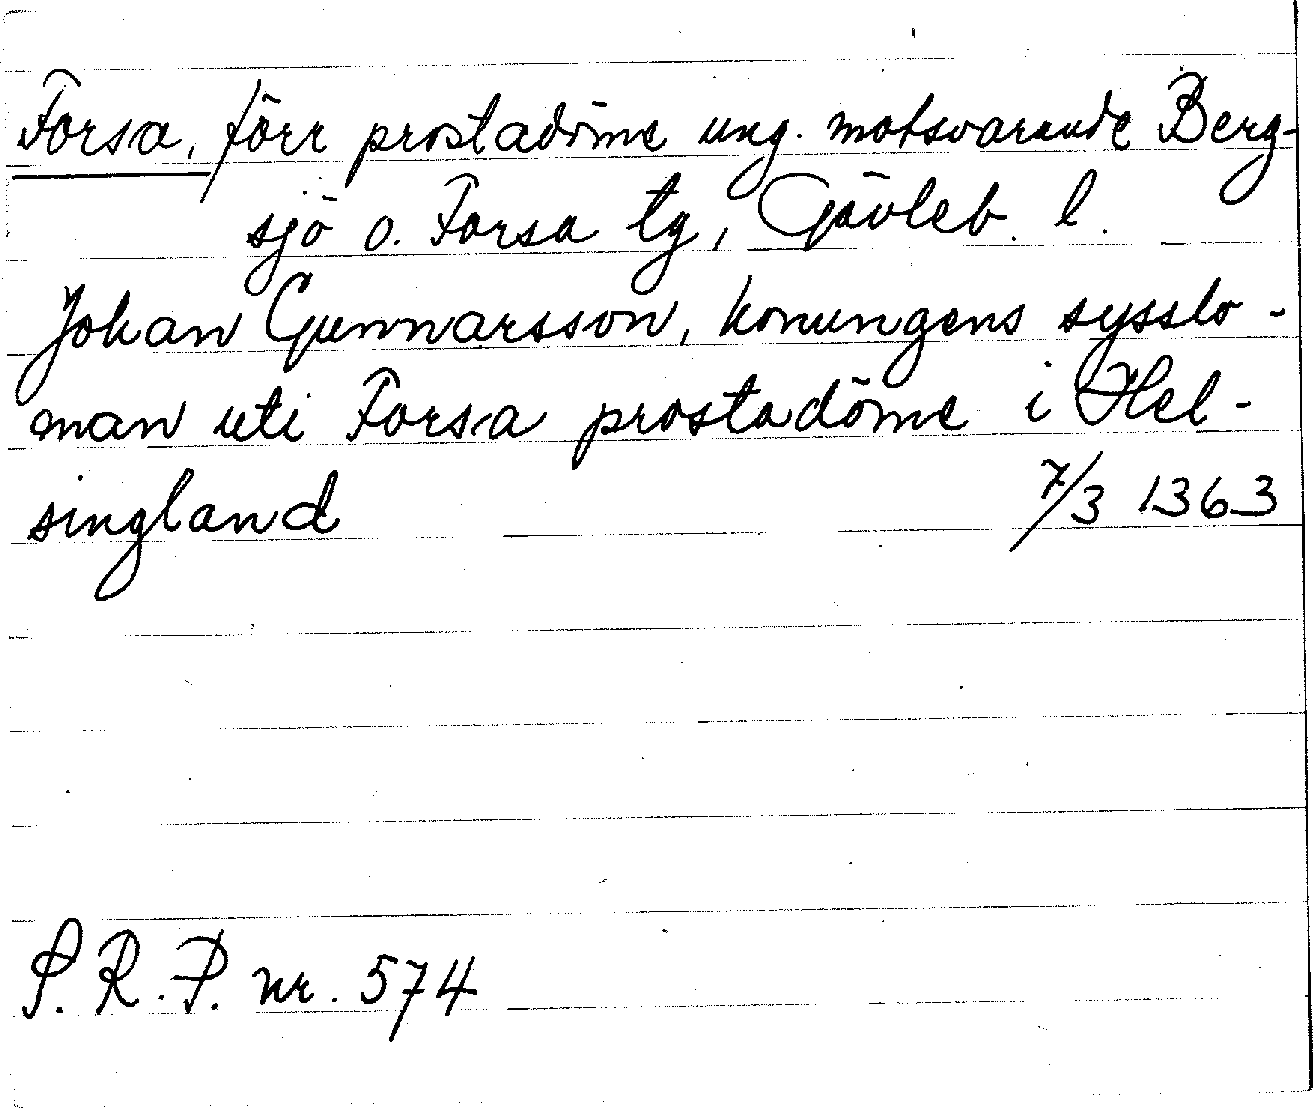 Forsa, förr prostadöme ung. motsvarande Berg-
sjö o. Forsa tg, Gävleb. l.
Johan Gunnarsson, konungens sysslo-
man uti Forsa prostadöme i Hel-
singland 7/3 1363
S.R.P. nr. 574